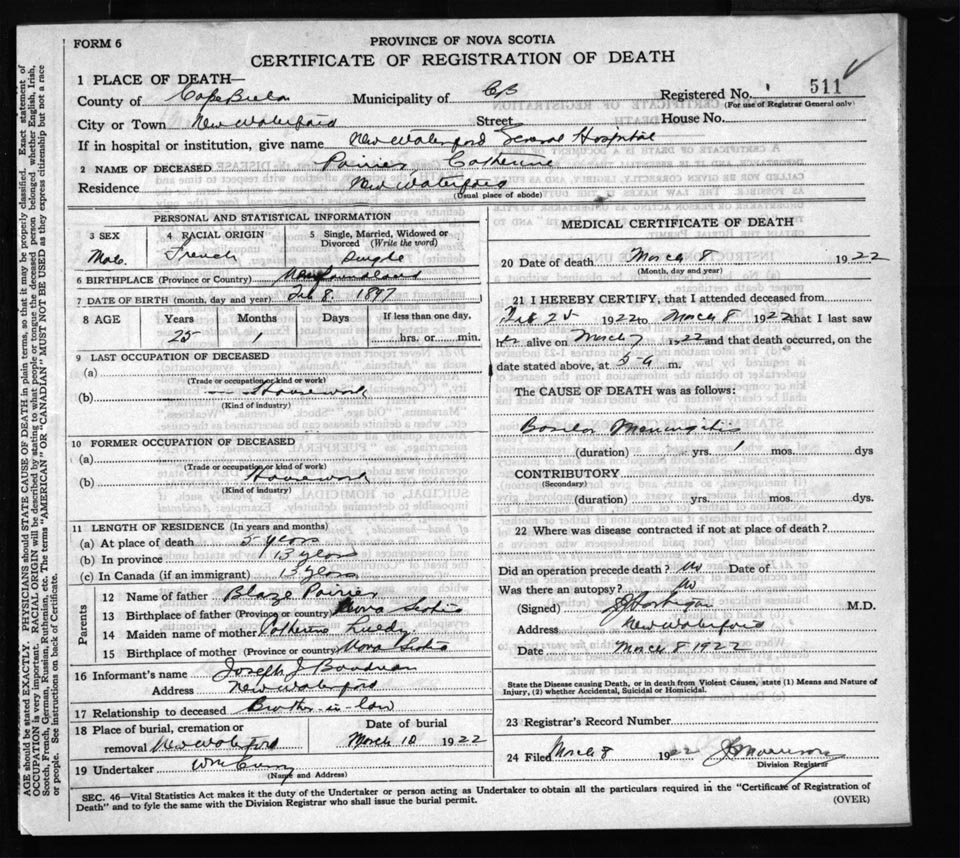 FORM 6
PROVINCE OF NOVA SCOTIA
CERTIFICATE OF REGISTRATION OF DEATH
1 PLACE OF DEATH—
County of Cape Breton Municipality of CB Registered No. 511
(For use of Registrar General only)
City or Town New Waterford Street House No.
If in hospital or institution, give name New Waterford General Hospital
2 NAME OF DECEASED Poirier, Catherine
Residence New Waterford
(Usual place of abode)
PERSONAL AND STATISTICAL INFORMATION
3 SEX 4 RACIAL ORIGIN 5 Single, Married, Widowed or Divorced (Write the word)
French Single
6 BIRTHPLACE (Province or Country) Newfoundland
7 DATE OF BIRTH (month, day and year) Feb 8. 1897
8 AGE Years Months Days If less than one day,
25 1 hrs. or min.
9 LAST OCCUPATION OF DECEASED
(a)
(Trade or occupation or kind or work)
(b) Housework
(Kind of industry)
10 FORMER OCCUPATION OF DECEASED
(a)
(Trade or occupation or kind or work)
(b) Housework
(Kind of industry)
11 LENGTH OF RESIDENCE (In years and months)
(a) At place of death 5 years
(b) In province 13 years
(c) In Canada (if an immigrant) 13 years
Parents
12 Name of father Blaze Poirier
13 Birthplace of father (Province or country) Nova Scotia
14 Maiden name of mother Catherine
15 Birthplace of mother (Province or country) Nova Scotia
16 Informant's name Joseph J
Address New Waterford
17 Relationship to deceased Brother-in-law
18 Place of burial, cremation or removal New Waterford
Date of burial
March 10 1922
19 Undertaker Wm Curry
(Name and Address)
MEDICAL CERTIFICATE OF DEATH
20 Date of death March 8 1922
(Month, day and year)
21 I HEREBY CERTIFY, that I attended deceased from
Feb 25 1922 to March 8 1922 that I last saw
her alive on March 7 1922 and that death occurred, on the
date stated above, at 5 a m.
The CAUSE OF DEATH was as follows:
Basilar Meningitis
(duration) yrs. 1 mos. dys
CONTRIBUTORY
(Secondary)
(duration) yrs. mos. dys.
22 Where was disease contracted if not at place of death?
Did an operation precede death? No Date of
Was there an autopsy? No
(Signed) M.D.
Address New Waterford
Date March 8 1922
State the Disease causing Death, or in death from Violent Causes, state (1) Means and Nature of
Injury, (2) whether Accidental, Suicidal or Homicidal.
23 Registrar's Record Number
24 Filed March 8 1922
Division Registrar
SEC. 46—Vital Statistics Act makes it the duty of the Undertaker or person acting as Undertaker to obtain all the particulars required in the "Certificate of Registration of
Death" and to fyle the same with the Division Registrar who shall issue the burial permit.
(OVER)
AGE should be stated EXACTLY. PHYSICIANS should STATE CAUSE OF DEATH in plain terms, so that it may be properly classified. Exact statement of
OCCUPATION is very important. RACIAL ORIGIN will be described by stating to what people or tongue the deceased person belonged, whether English, Irish,
Scotch, French, German, Russian, Ruthenian, etc. The terms "AMERICAN" OR "CANADIAN" MUST NOT BE USED as they express citizenship but not a race
or people. See instructions on back of Certificate.